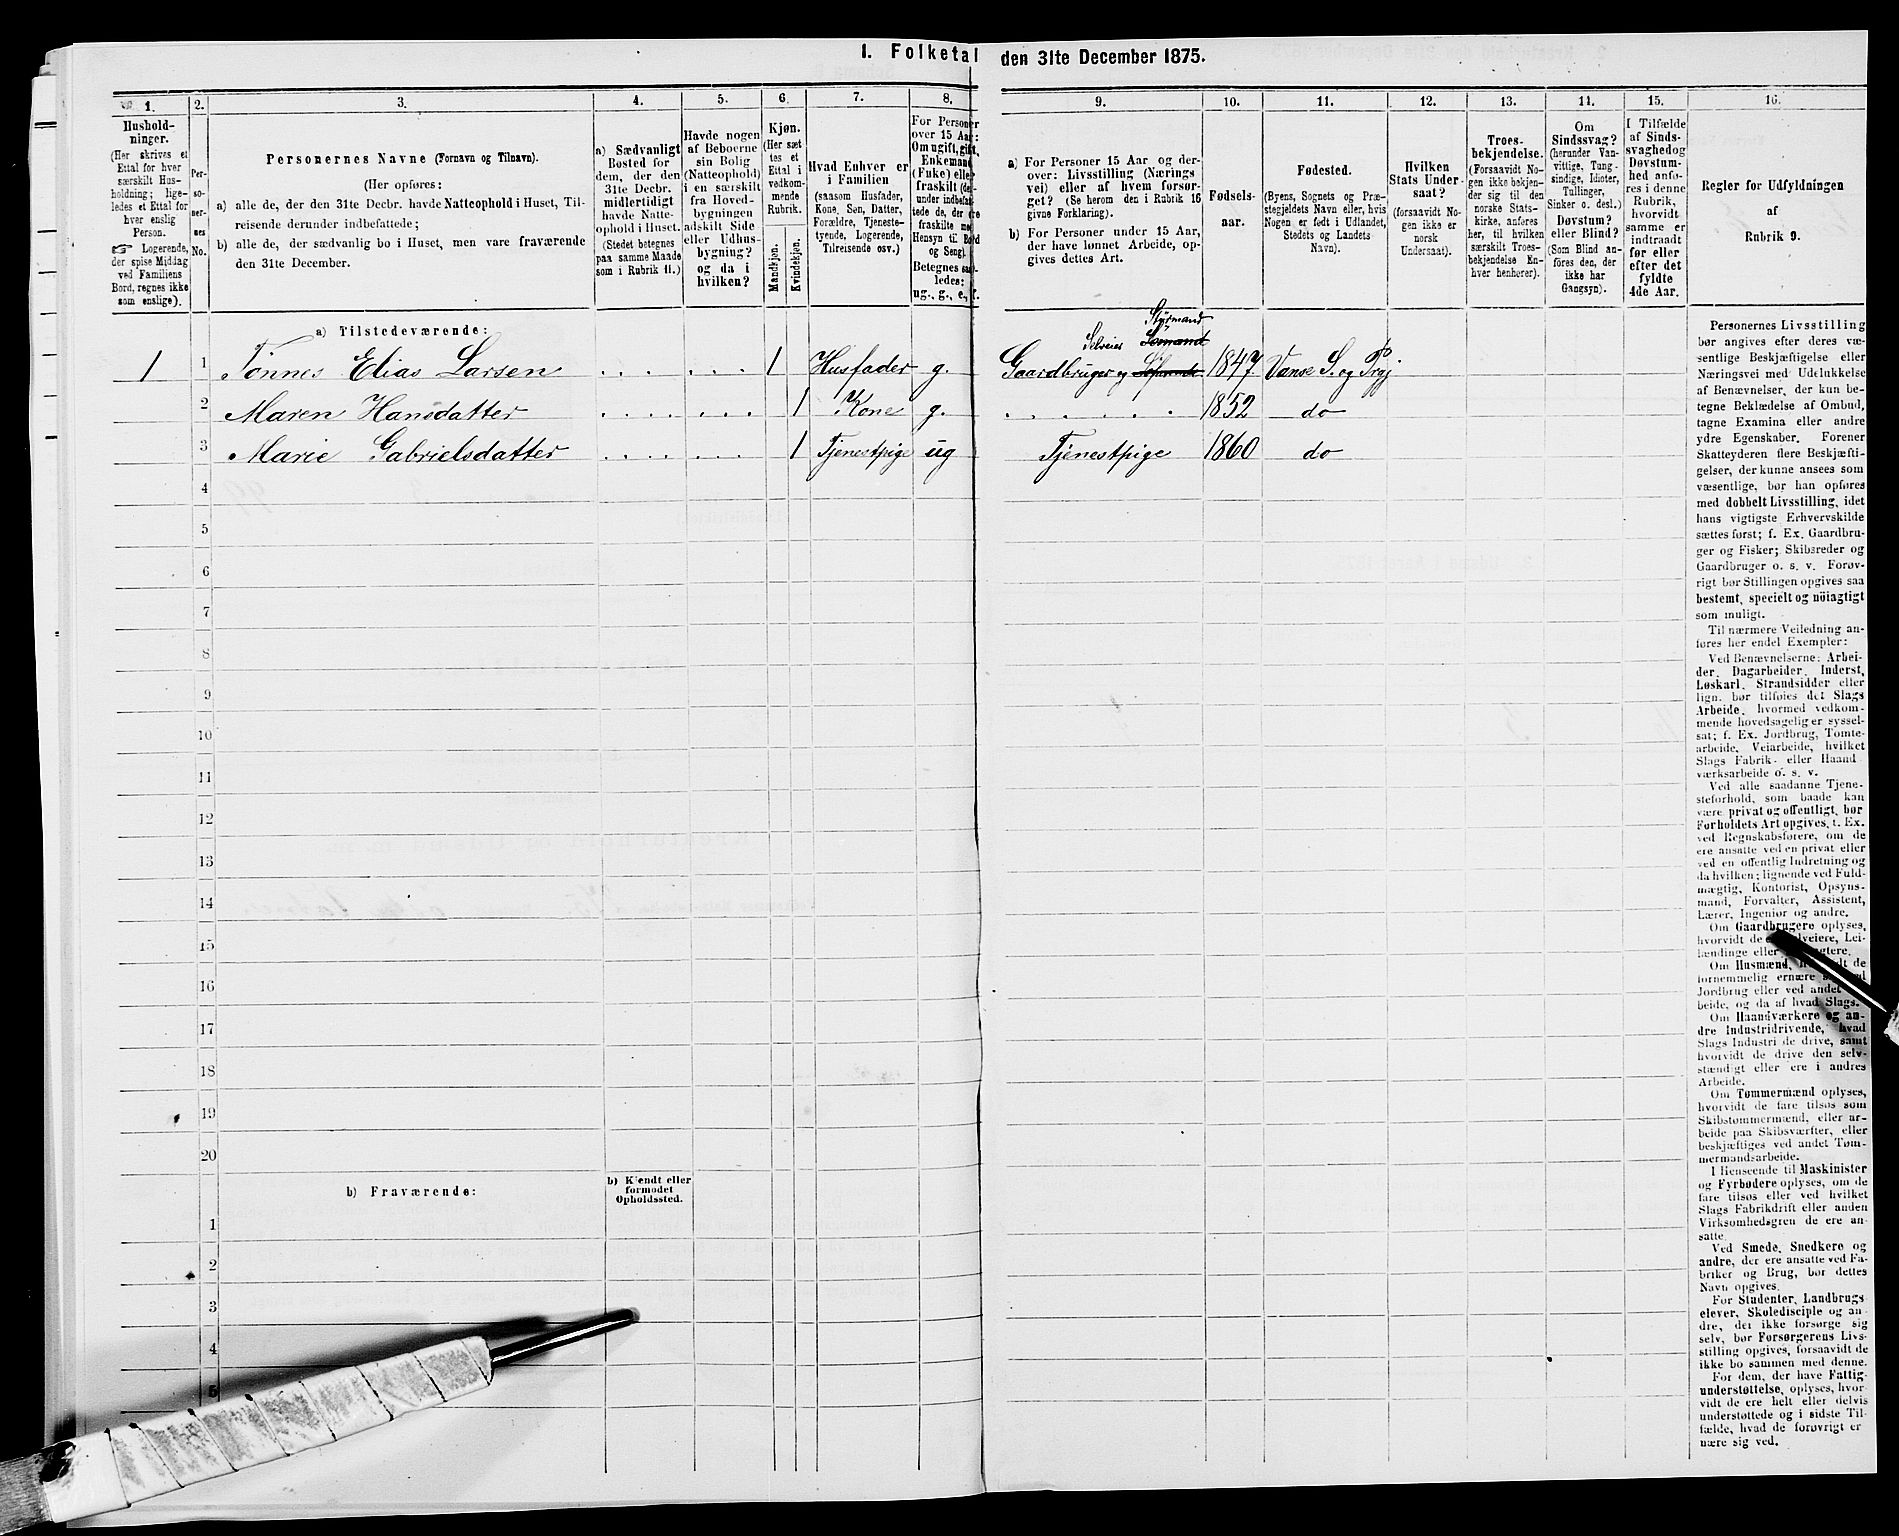 1. Folketal den 31te December 1875.
1. 2. 3. 4. 5. 6. 7. 8. 9. 10. 11. 12. 13. 11. 15. 16.
Hushold-
ninger.
(Her skrives et
Ettal for hver
særskilt Hus-
holdning; lige-
ledes et Ettal for
hver enslig
Person.
☞ Logerende,
der spise Middag
ved Familiens
Bord, regnes ikke
som enslige).
Per-
so-
ner-
nes
No.
Personernes Navne (Fornavn og Tilnavn).
(Her opføres:
a) alle de, der den 31te Decbr. havde Natteophold i Huset, Til-
reisende derunder indbefattede;
b) alle de, der sædvanlig bo i Huset, men vare fraværende
den 31te December.
a) Sædvanligt
Bosted for
dem, der den
31te Decbr.
midlertidigt
havde Natte-
ophold i Huset.
(Stedet betegnes
paa samme Maade
som i Rubrik 11.)
Havde nogen
af Beboerne
sin Bolig
(Natteophold)
i en særskilt
fra Hoved-
bygningen
adskilt Side
eller Udhus-
bygning?
og da i
hvilken?
Kjøn.
(Her sæt
tes et
Ettal i
vedkom-
mende
Rubrik.
Mandkjøn.
Kvindekjøn.
Hvad Enhver er
i Familien
(saasom Husfader,
Kone, Søn, Datter,
Forældre, Tjeneste-
tyende, Logerende,
Tilreisende osv.)
For Personer
over 15 Aar:
Om ugift, gift,
Enkemand
(Fuke) eller
fraskilt (der-
under indbefat-
tede de, der ere
fraskilte med
Hensyn til Bord
og Seng).
Betegnes saa-
ledes:
ug., g., e., f.
a) For Personer 15 Aar og der-
over: Livsstilling (Nærings
vei) eller af hvem forsør-
get? (Se herom den i Rubrik 16
givne Forklaring).
b) For Personer under 15 Aar,
der have lønnet Arbeide, op-
gives dettes Art.
Fødsels-
aar.
Fødested.
(Byens, Sognets og Præ-
stegjeldets Navn eller, hvis
Nogen er født i Udlandet,
Stedets og Landets
Navn).
Hvilken
Stats Under-
saat?
(forsaavidt No-
gen ikke er
norsk
Undersaat).
Troes-
bekjendelse.
(Forsaavidt No-
gen ikke bekjen-
der sig til den
norske Stats-
kirke, anføres
her, til hvilken
særskilt Troes-
bekjendelse En-
hver henhører).
Om
Sindssvag?
(herunder Van-
vittige, Tung-
sindige, Idioter,
Tullinger,
Sinker o. desl.)
Døvstum?
eller Blind?
(Som Blind an-
føres den, der
ikke har
Gangsyn).
I Tilfælde
af Sinds-
svaghedog
Døvstum-
hed anfø-
res i denne
Rubrik,
hvorvidt
samme er
indtraadt
før eller
efter det
fyldte
4de Aar.
Regler for Udfyldningen
af
Rubrik 9.
a) Tilstedeværende:
Styrmand
Selveier Sømand
1 1 Tönnes Elias Larsen 1 Husfader g. Gaardbruger og 1847 Vanse S. og Prgj
2 Maren Hansdatter 1 Kone g. 1852 do
3 Marie Gabrielsdatter 1 Tjenestpige ug Tjenestpige 1860 do
4
5
6
7
8
9
10
11
12
13
14
15
16
17
18
19
20
b) Fraværende:
b) Kjendt eller
formodet
Opholdssted.
1
2
3
4
5
Personernes Livsstilling
bør angives efter deres væ-
sentlige Beskjæftigelse eller
Næringsvei med Udelukkelse
af Benævnelser, der kun be-
tegne Beklædelse af Ombud,
tagne Examina eller andre
ydre Egenskaber. Forener
Skatteyderen flere Beskjæfti-
gelser, der kunne ansees som
væsentlige, bør han opføres
med dobbelt Livsstilling, idet
hans vigtigste Erhvervskilde
sættes først; f. Ex. Gaardbru-
ger og Fisker; Skibsreder og
Gaardbruger o. s. v. Forøv-
rigt bør Stillingen opgives saa
bestemt, specielt og nöiagtigt
som muligt.
Til nærmere Veiledning an-
føres her endel Exempler:
Ved Benævnelserne: Arbei-
der, Dagarbeider, Inderst,
Løskarl, Strandsidder eller
lign. bør tilføies det Slags
Arbeide, hvormed vedkom-
mende hovedsagelig er syssel-
sat; f. Ex. Jordbrug, Tomte-
arbeide, Veiarbeide, hvilket
Slags Fabrik- eller Haand
værksarbeide o. s. v.
Ved alle saadanne Tjene-
steforhold, som baade kan
være privat og offentligt, bør
Forholdets Art opgives, t. Ex.
ved Regnskabsførere, om de
ere ansatte ved en privat eller
ved en offentlig Indretning og
da hvilken; lignende ved Fuld-
mægtig, Kontorist, Opsyns-
mand, Forvalter, Assistent,
Lærer, Ingeniør og andre.
Om Gaardbrugere oplyses,
hvorvidt de Lei-
lændinge eller
Om Husmænd, de
fornemmelig ernære
Jordbrug eller ved andet
beide, og da af hvad Slags.
Om Haandværkere og an-
dre Industridrivende, hvad
Slags Industri de drive, samt
hvorvidt de drive den selv-
stændigt eller ere i andres
Arbeide.
Om Tømmermænd oplyses,
hvorvidt de fare tilsøs som
Skibstømmermænd, eller ar-
beide paa Skibsværfter, eller
beskjæftiges ved andet Tøm-
mermandsarbeide.
I Henseende til Maskinister
og Fyrbødere oplyses, om de
fare tilsøs eller ved hvilket
Slags Fabrikdrift eller anden
Virksomhedsgren de ere an-
satte.
Ved Smede, Snedkere og
andre, der ere ansatte ved Fa-
briker og Brug, bør dettes
Navn opgives.
For Studenter, Landbrugs
elever, Skoledisciple og an-
dre, der ikke forsørge sig
selv, bør Forsørgerens Livs-
stilling opgives, forsaavidt de
ikke bo sammen med denne.
For dem, der have Fattig-
understøttelse, oplyses, hvor-
vidt de ere helt eller delvis
understøttede og i sidste Til-
fælde, hvad de forøvrigt er
nære sig ved.